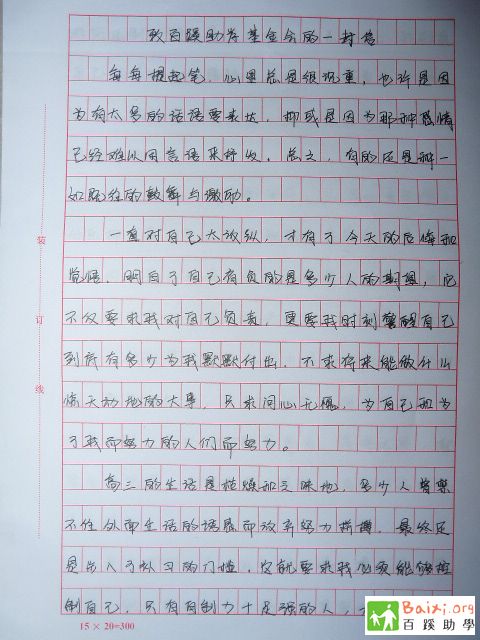 致百蹊助学基金会的一封信
每每提起笔，心里总是很沉重，也许是因
为有太多的话语要表达，抑或是因为那种感情
已经难以用言语来抒发。总之，有的只是种一
如既往的鼓舞与激励。
一直对自己太放纵，才有了今天的后悔和
觉悟。明白了自己肩负的是多少人的期望，它
不仅要求我对自己负责，更要我时刻警醒自己
到底有多少为我默默付出。不求将来能做什么
惊天动地的大事，只求问心无愧，为自己和为
了我而努力的人们而努力。
高三的生活是枯燥和乏味地，多少人曾禁
不住外面生活的诱惑而放弃努力拼搏，最终只
是步入了补习的门槛，这就要求我必须能够控
制自己，只有自制力十足强的人，
装
订
线
15 × 20=300
Baixi.org
百蹊助學